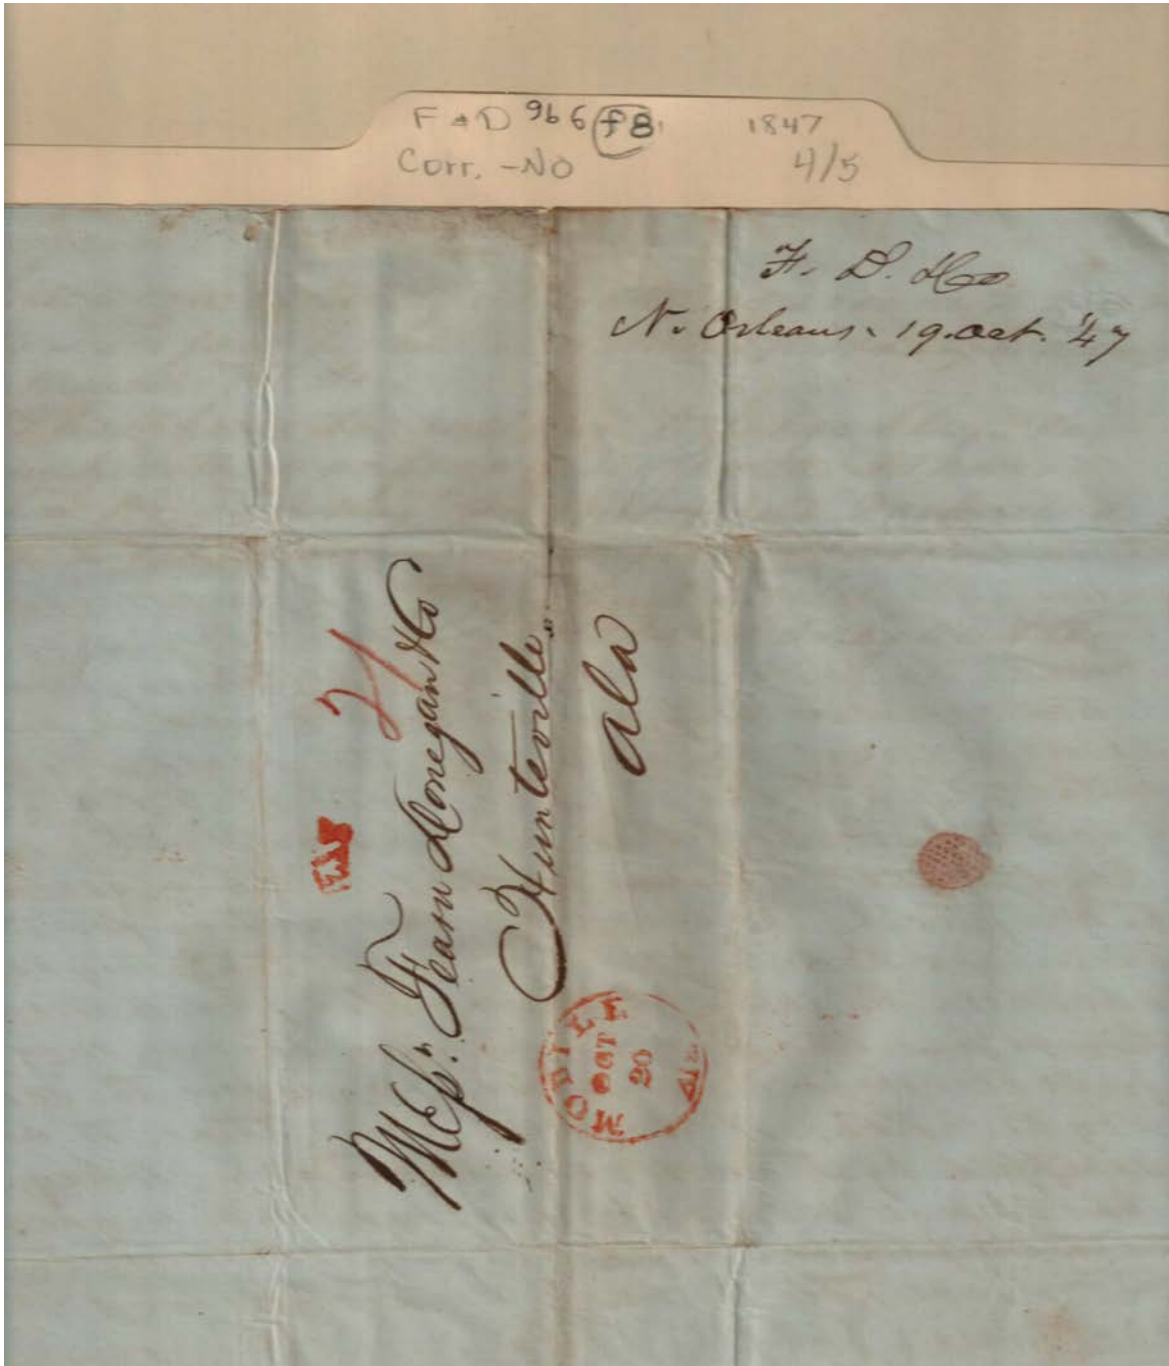 F & D 9b 6 f8 1847
Corr. - No 4/5
F. D. & Co
N. Orleans. 19. Oct. '47
Mess. Fearn Donegan & Co
Huntsville
Ala
MOBILE
OCT
20